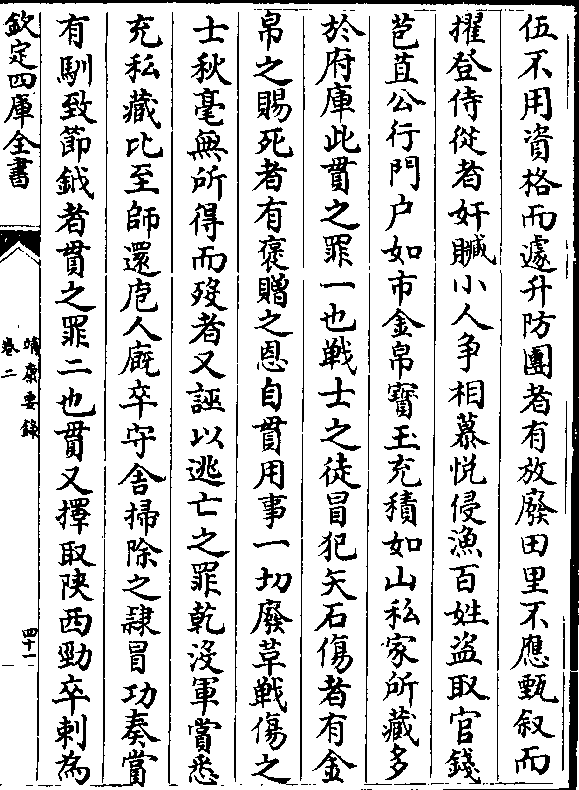 伍不用資格而遽升防團者有放廢田里不應甄叙而
擢登侍從者奸贓小人争相慕悦侵漁百姓盗取官錢
苞苴公行門户如市金帛寳玉充積如山私家所藏多
於府庫此貫之罪一也戰士之徒冒犯矢石傷者有金
帛之賜死者有褒贈之恩自貫用事一切廢革戰傷之
士秋毫無所得而殁者又誣以逃亡之罪乾没軍賞悉
充私藏比至師還庖人廐卒守舍掃除之隷冒功奏賞
有馴致節鉞者貫之罪二也貫又擇取陜西勁卒刺為
欽定四庫全書
靖康要錄
卷二
四十一